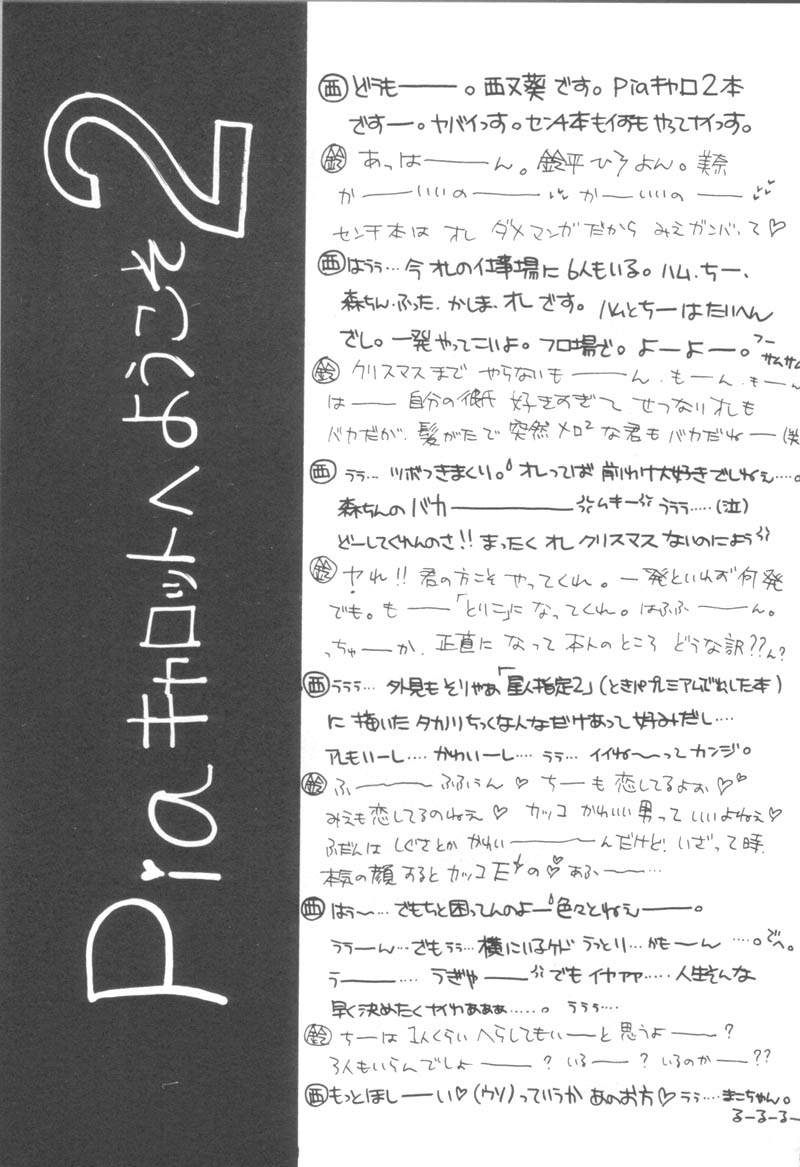 Piaキャロットへようこそ2
西 どうもー。西又葵です。Piaキャロ2本
ですー。ヤバイっす。センチ本もイオもやってナイっす。
鈴 あっはーーん。鈴平ひろよん。美奈
かーーいいのーー かーいいのー
センチ本は オレ ダメマンガだから みえガンバって♡
西 はうぅ…今オレの仕事場に6人もいる。ハム、ちー、
森ちん、ふった、かしま、オレです。ハムとちーはたいへん
ざし。一発やってこいよ。フロ場で。よーよー。フー
サムサム
鈴 クリスマスまで やらないもーーん、もーん、もーん
はーー 自分の彼氏 好きすぎて せつなりオレも
バカだが、髪がたで突然メロ²な君もバカだねー(笑
西 ララ… ツボつきまくり。オレってば 前わけ大好きでしねぇ…。
森ちんのバカーーームキー うううう……(泣)
どーしてくれんのさ!! まったく オレ クリスマス ないのによう
鈴 ヤれ!! 君の方こそ やってくれ。一発といわず何発
でも。もー「とりこ」になってくれ。はふふーーん。
っちゅーか、正直に なって 本人のところ どうな訳??ん?
西 ううう… 外見も そりゃあ「星人指定2」(ときパプレミアムでだした本)
に 描いた タカハリちっくな人なだけあって 好みだし…
アレもいーし…. かわいーし…. うぅ… イイね〜ってカンジ。
鈴 ふーー ふふぅん♡ ちーも 恋してるよお♡
みえも恋してるのねえ♡ カッコ かわいい男って いいよねえ♡
ふだんは しぐさとか かわいーーんだけど! いざって時、
本気の顔 するとカッコEの♡ あふー…
西 はぅ〜… でもちと困ってんのよー 色々とねぇーー。
ううーん… でもうぅ… 横にいるケド うっとり… かもーん ….。でへ。
うーー…. うぎゃーー でも イヤァァ….. 人生そんな
早く決めたくナイわぁぁぁ……。 ううぅ….
鈴 ちーは 1人くらい へらしてもいーと思うよー?
3人もいらんでしょーー? いるー? いるのかー??
西 もっとほしーーい♡(ウソ)っていうか あのお方♡ うぅ…. まこちゃん。
るーるーるー